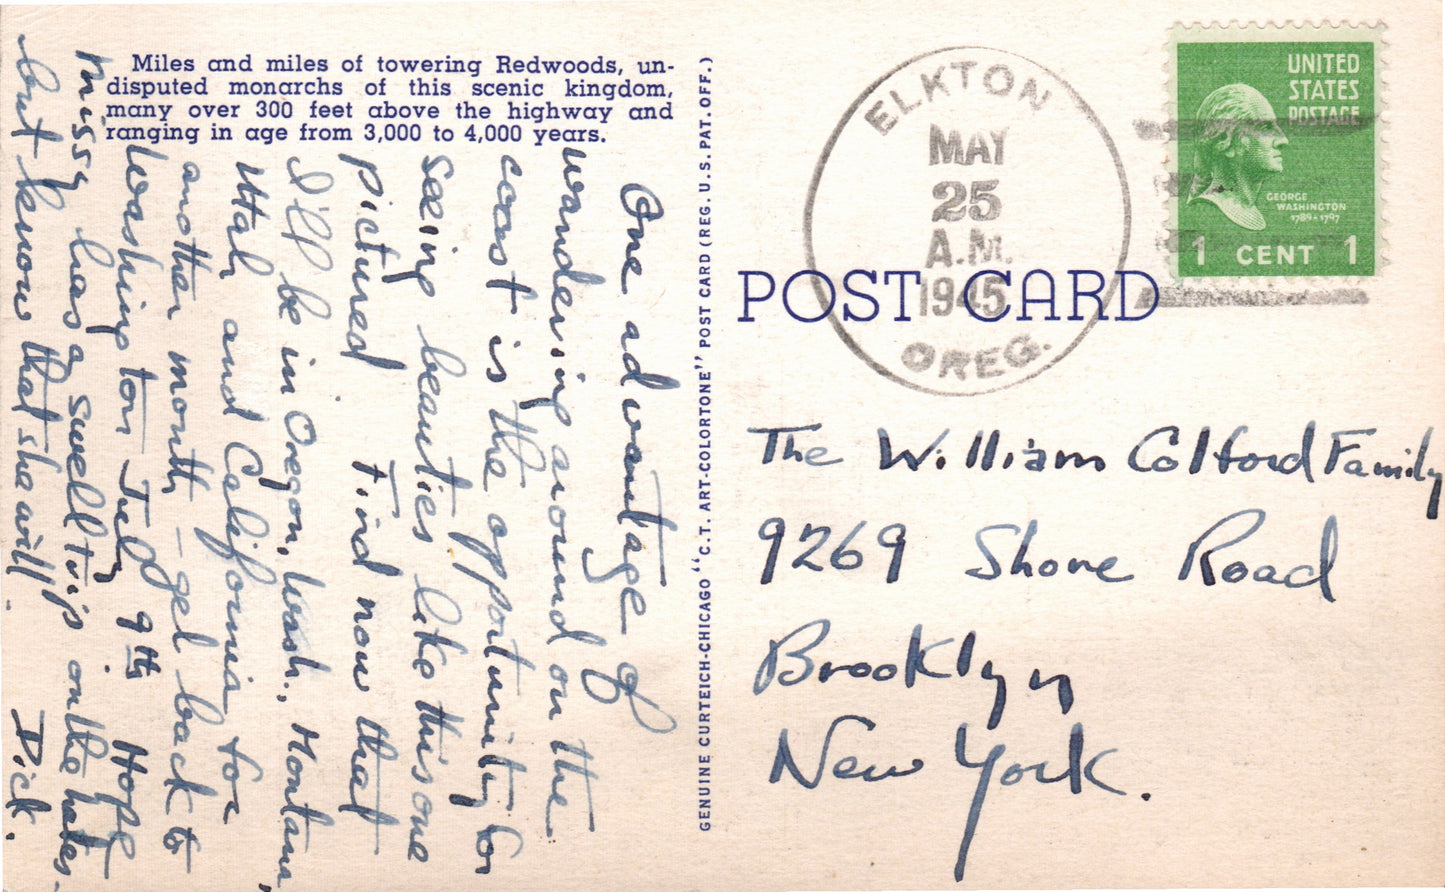 Miles and miles of towering Redwoods, un-
disputed monarchs of this scenic kingdom,
many over 300 feet above the highway and
ranging in age from 3,000 to 4,000 years.
One advantage of
wandering around on the
coast is the opportunity for
seeing beauties like this one
pictured Find now that
I'll be in Oregon, Wash., Montana,
Utah and California for
another month – get back to
Washington July 9th Hope
Missy has a swell trip on the
but know that she will. Dick.
GENUINE CURTEICH-CHICAGO "C.T. ART-COLORTONE" POST CARD (REG. U.S. PAT. OFF.)
ELKTON
MAY
25
A.M.
1945
OREG.
UNITED
STATES
POSTAGE
GEORGE
WASHINGTON
1789-1797
1 CENT 1
POST CARD
The William Colford Family
9269 Shore Road
Brooklyn
New York.